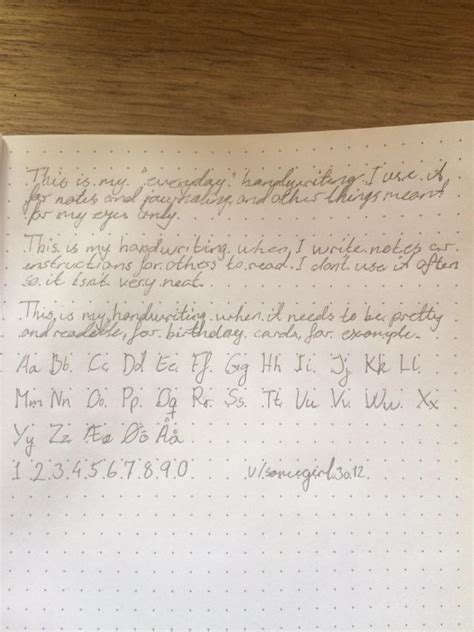 This is my "everyday" handwriting. I use it
for notes and journaling, and other things meant
for my eyes only.
This is my handwriting when I write notes or
instructions for others to read. I dont use it often
so it isnt very neat.
This is my handwriting when it needs to be pretty
and readable, for birthday cards, for example.
Aa Bb Cc Dd Ee Ff Gg Hh Ii Jj Kk Ll
Mm Nn Oo Pp Qq Rr Ss Tt Uu Vv Ww Xx
Yy Zz Ææ Øø Åå
1 2 3 4 5 6 7 8 9 0